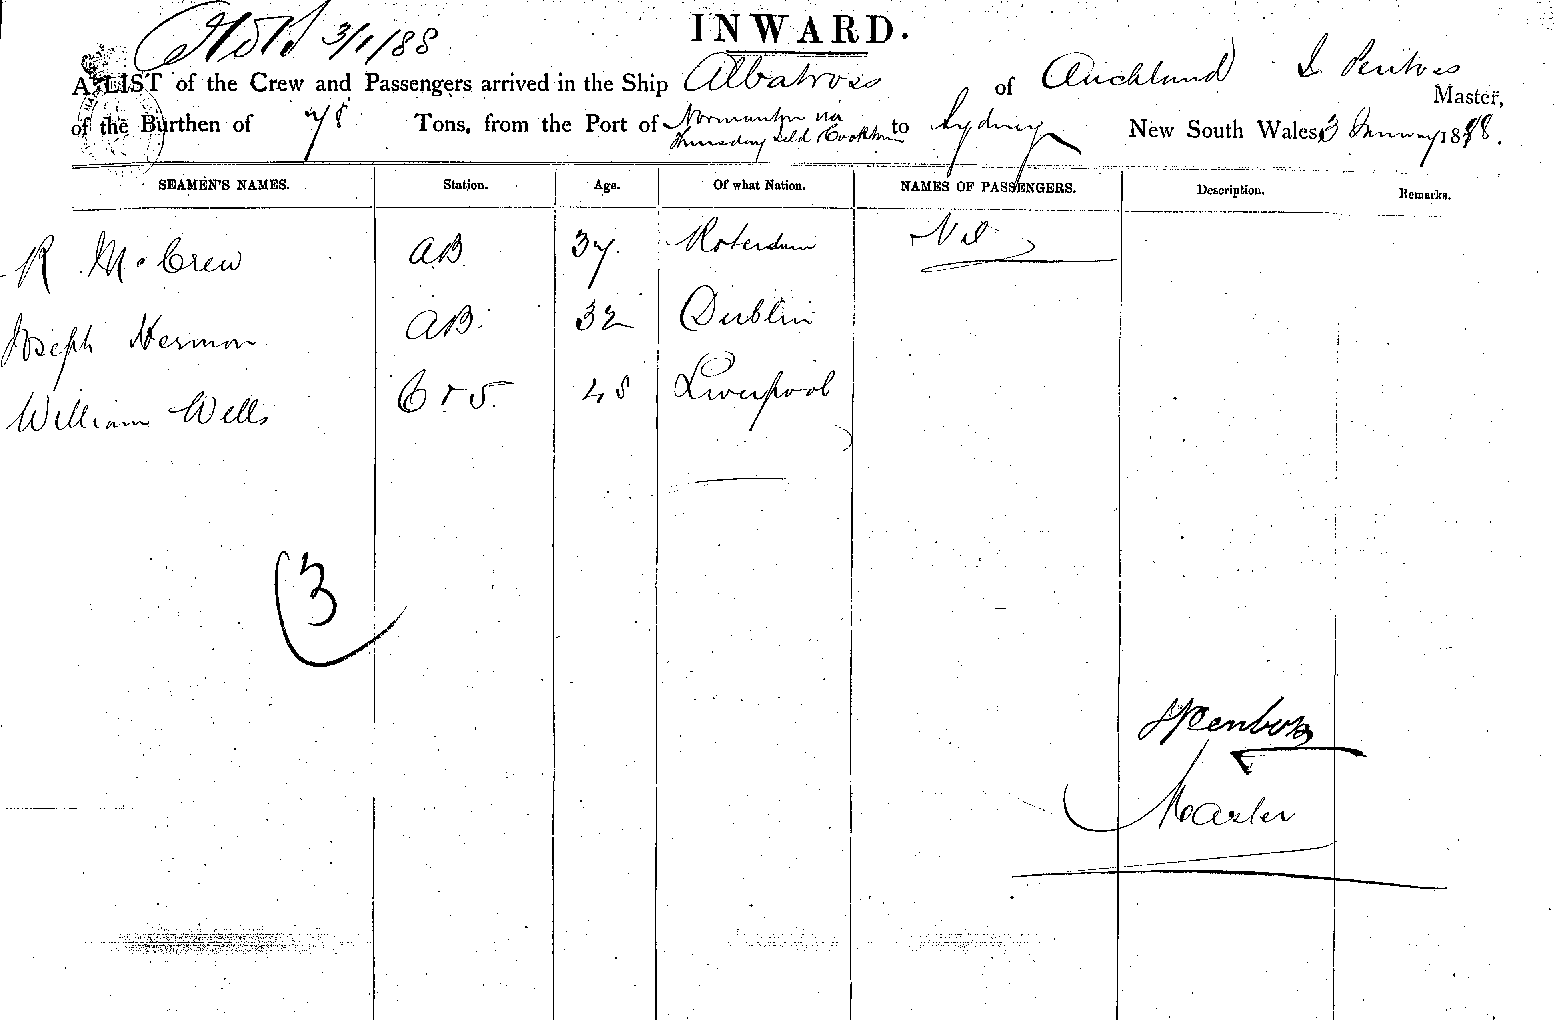 3/1/88
INWARD.
A LIST of the Crew and Passengers arrived in the Ship Albatross of Auckland
Master,
of the Burthen of 78 Tons, from the Port of Normanton via Thursday Isld Cooktown to Sydney New South Wales 3 January 1888.
SEAMEN'S NAMES. Station. Age. Of what Nation. NAMES OF PASSENGERS. Description. Remarks.
R McCrew AB 37 Roterdam Nil
Joseph Hermon AB. 32 Dublin
William Wells C & S. 48 Liverpool
3
Master